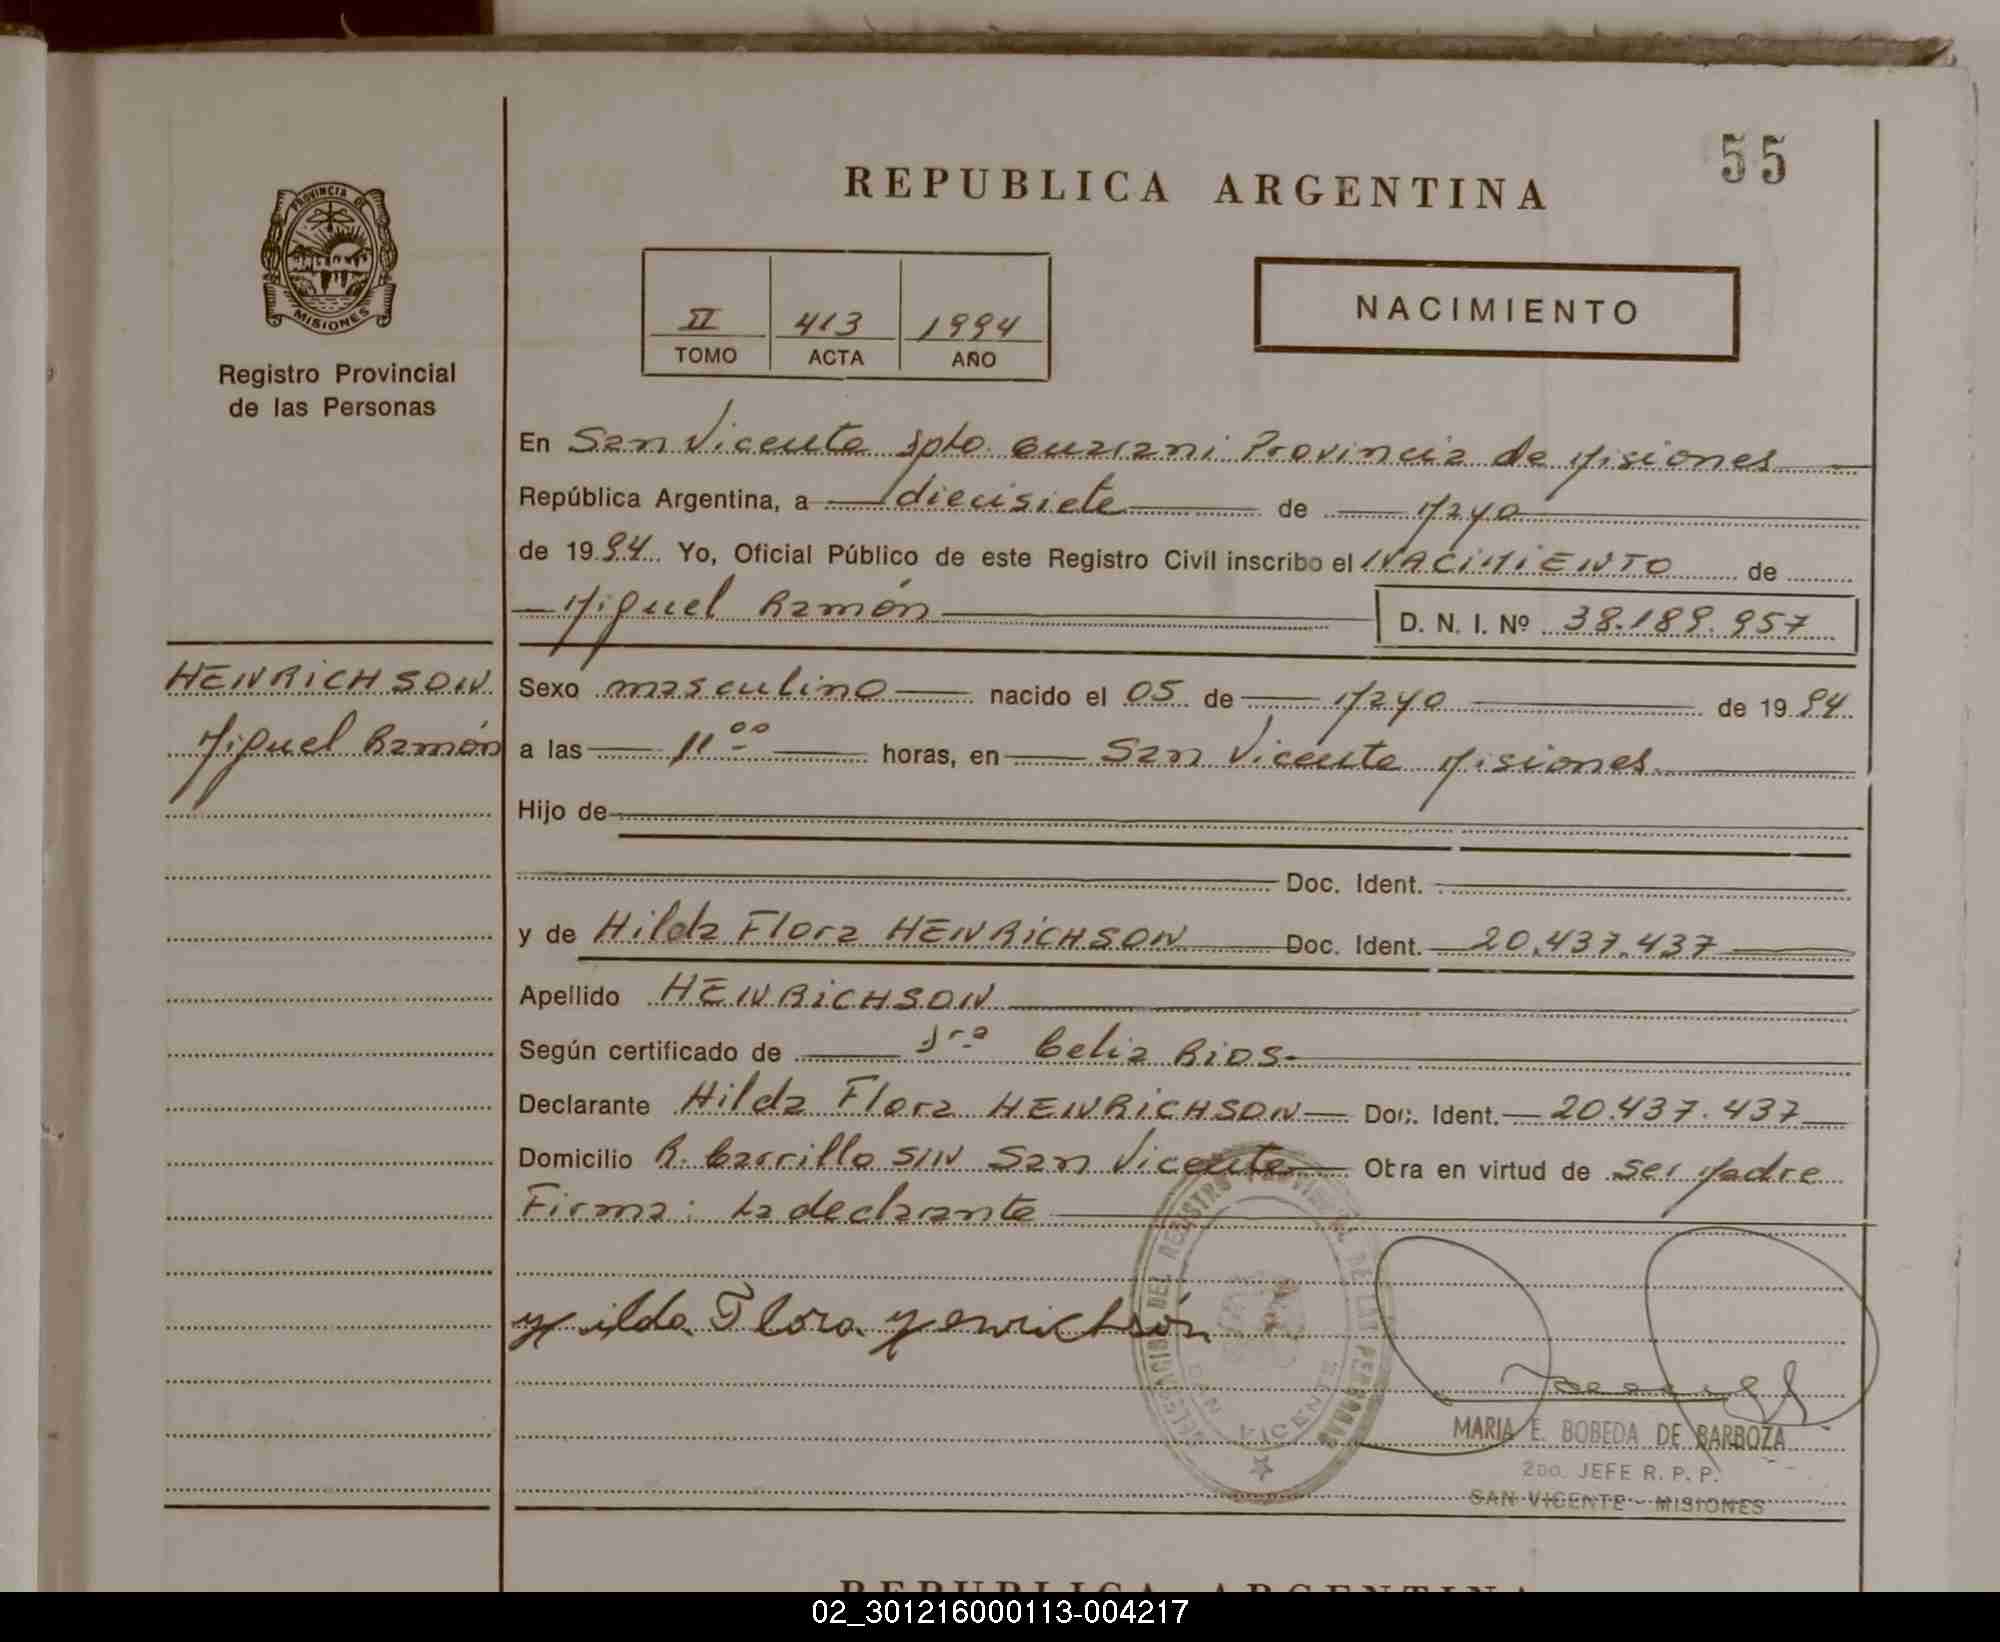 55
REPUBLICA ARGENTINA
PROVINCIA DE
MISIONES
Registro Provincial
de las Personas
II 413 1994
TOMO ACTA AÑO
NACIMIENTO
En San Vicente Dpto. Guarani Provincia de Misiones
República Argentina, a diecisiete de Mayo
de 1994. Yo, Oficial Público de este Registro Civil inscribo el NACIMIENTO de
Miguel Ramón D. N. I. Nº 38.189.957
HENRICHSON
Miguel Ramón
Sexo masculino nacido el 05 de Mayo de 1994
a las 11 00 horas, en San Vicente Misiones
Hijo de
Doc. Ident.
y de Hilda Flora HENRICHSON Doc. Ident. 20.437.437
Apellido HENRICHSON
Según certificado de Dra Celia Rios
Declarante Hilda Flora HENRICHSON Doc. Ident. 20.437.437
Domicilio R. Carrillo S/N San Vicente Obra en virtud de ser Madre
Firma: La declarante
Hilda Flora Henrichsón
DELEGACION DEL REGISTRO PROVINCIAL DE LAS PERSONAS
SAN VICENTE
MARIA E. BOBEDA DE BARBOZA
2do. JEFE R. P. P.
SAN VICENTE - MISIONES
REPUBLICA ARGENTINA
02_301216000113-004217